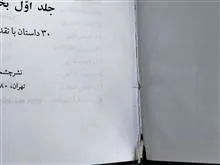 جلد اوّل بخ
۳۰ داستان با نقد
نشر چشمه
تهران، ۸۰